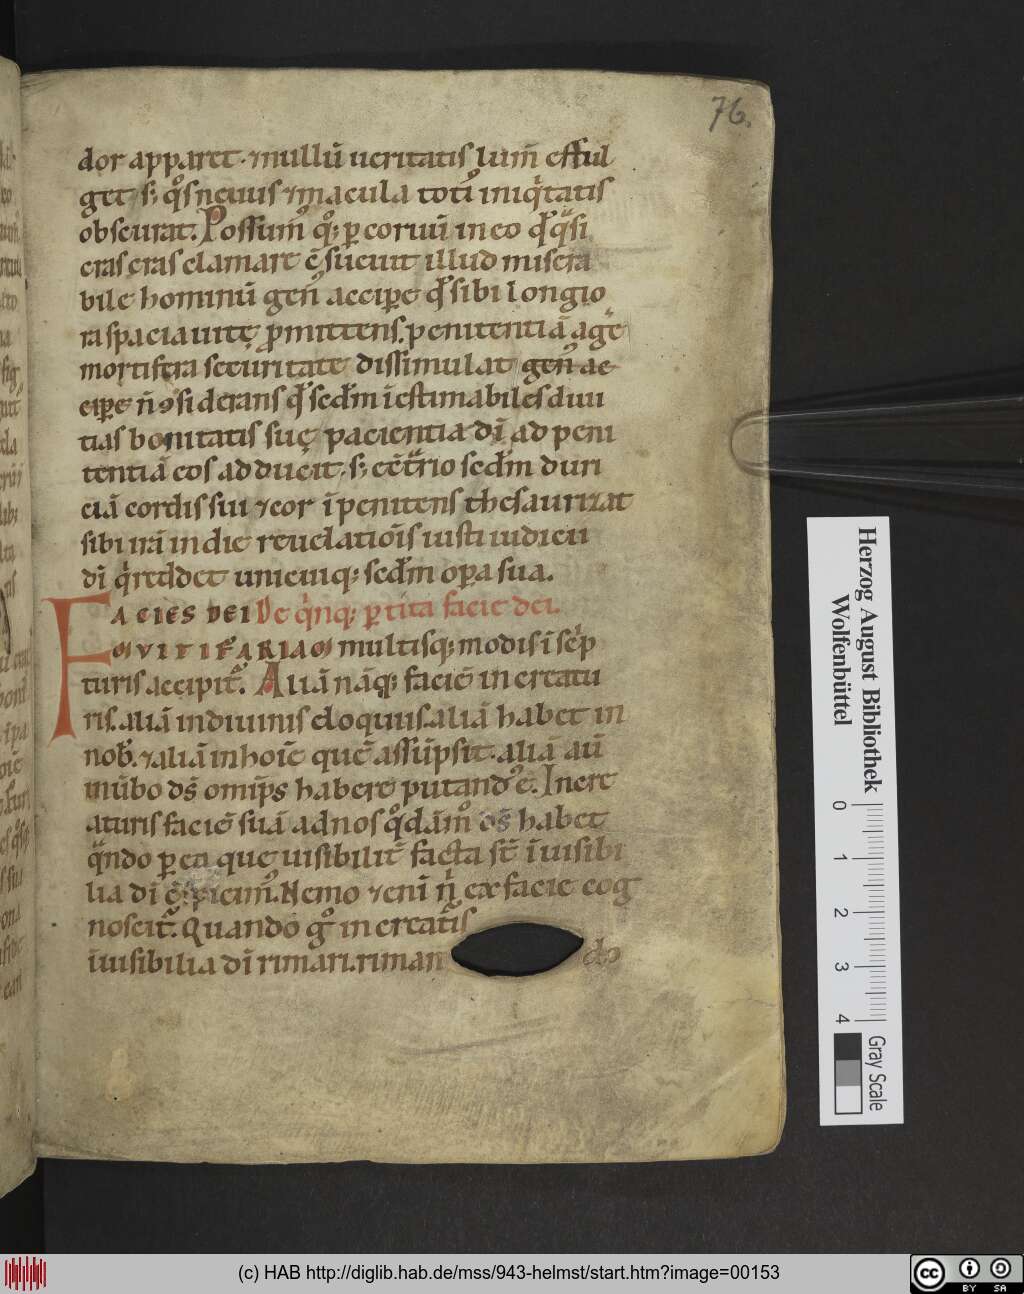 76.
dor apparet · ⁊ nullū ueritatis lum̄ efful
get · s; qͦs neuus ⁊ macula toti᷒ iniqͥtatis
obscurat. Possum᷒ qͦq; ꝑ coruū in eo qd̄ qͣsi
cras cras clamare ↄ̄sueuit illud misera
bile hominū gen᷒ accipe qd̄ sibi longio
ra spacia uitę ꝓmittens. penitentiā age
mortifera securitate dissimulat gen᷒ ac
cipe n̄ ↄsiderans qd̄ scd̄m īestimabiles diui
tias bonitatis suę paciencia dī ad peni
tentiā eos adducit · s; ecͦtͣrio scd̄m duri
ciā cordis sui ⁊ cor īpenitens thesaurizat
sibi irā in die reuelatiōis iusti iudicii
dī qͥ reddet unicuiq; scd̄m oꝑa sua.
FACIES DEI De qͥnq; ꝑtita facie dei.
OVITIFARIAO multisq; modis ī scͥp
turis accipit᷑. Aliā nāq; faciē in creatu
ris. aliā in diuinis eloquiis. aliā habet in
nob̄. ⁊ aliā in hoīe quē assūpsit. aliā aū
in ābo ds̄ omīps habere putand᷒ ē. In cre
aturis faciē suā ad nos qͦdām᷒ ds̄ habet
qͣndo ꝑ ea que uisibilit᷑ facta st̄ īuisibi
lia dī ↄ̄spicim᷒. Nemo ⁊enī n̄ ex facie cog
noscit᷑. Quando gͦ in creatͥs
īuisibilia dī rimari. riman do
Herzog August Bibliothek
Wolfenbüttel
0 1 2 3 4
Gray Scale
(c) HAB http://diglib.hab.de/mss/943-helmst/start.htm?image=00153
cc BY SA